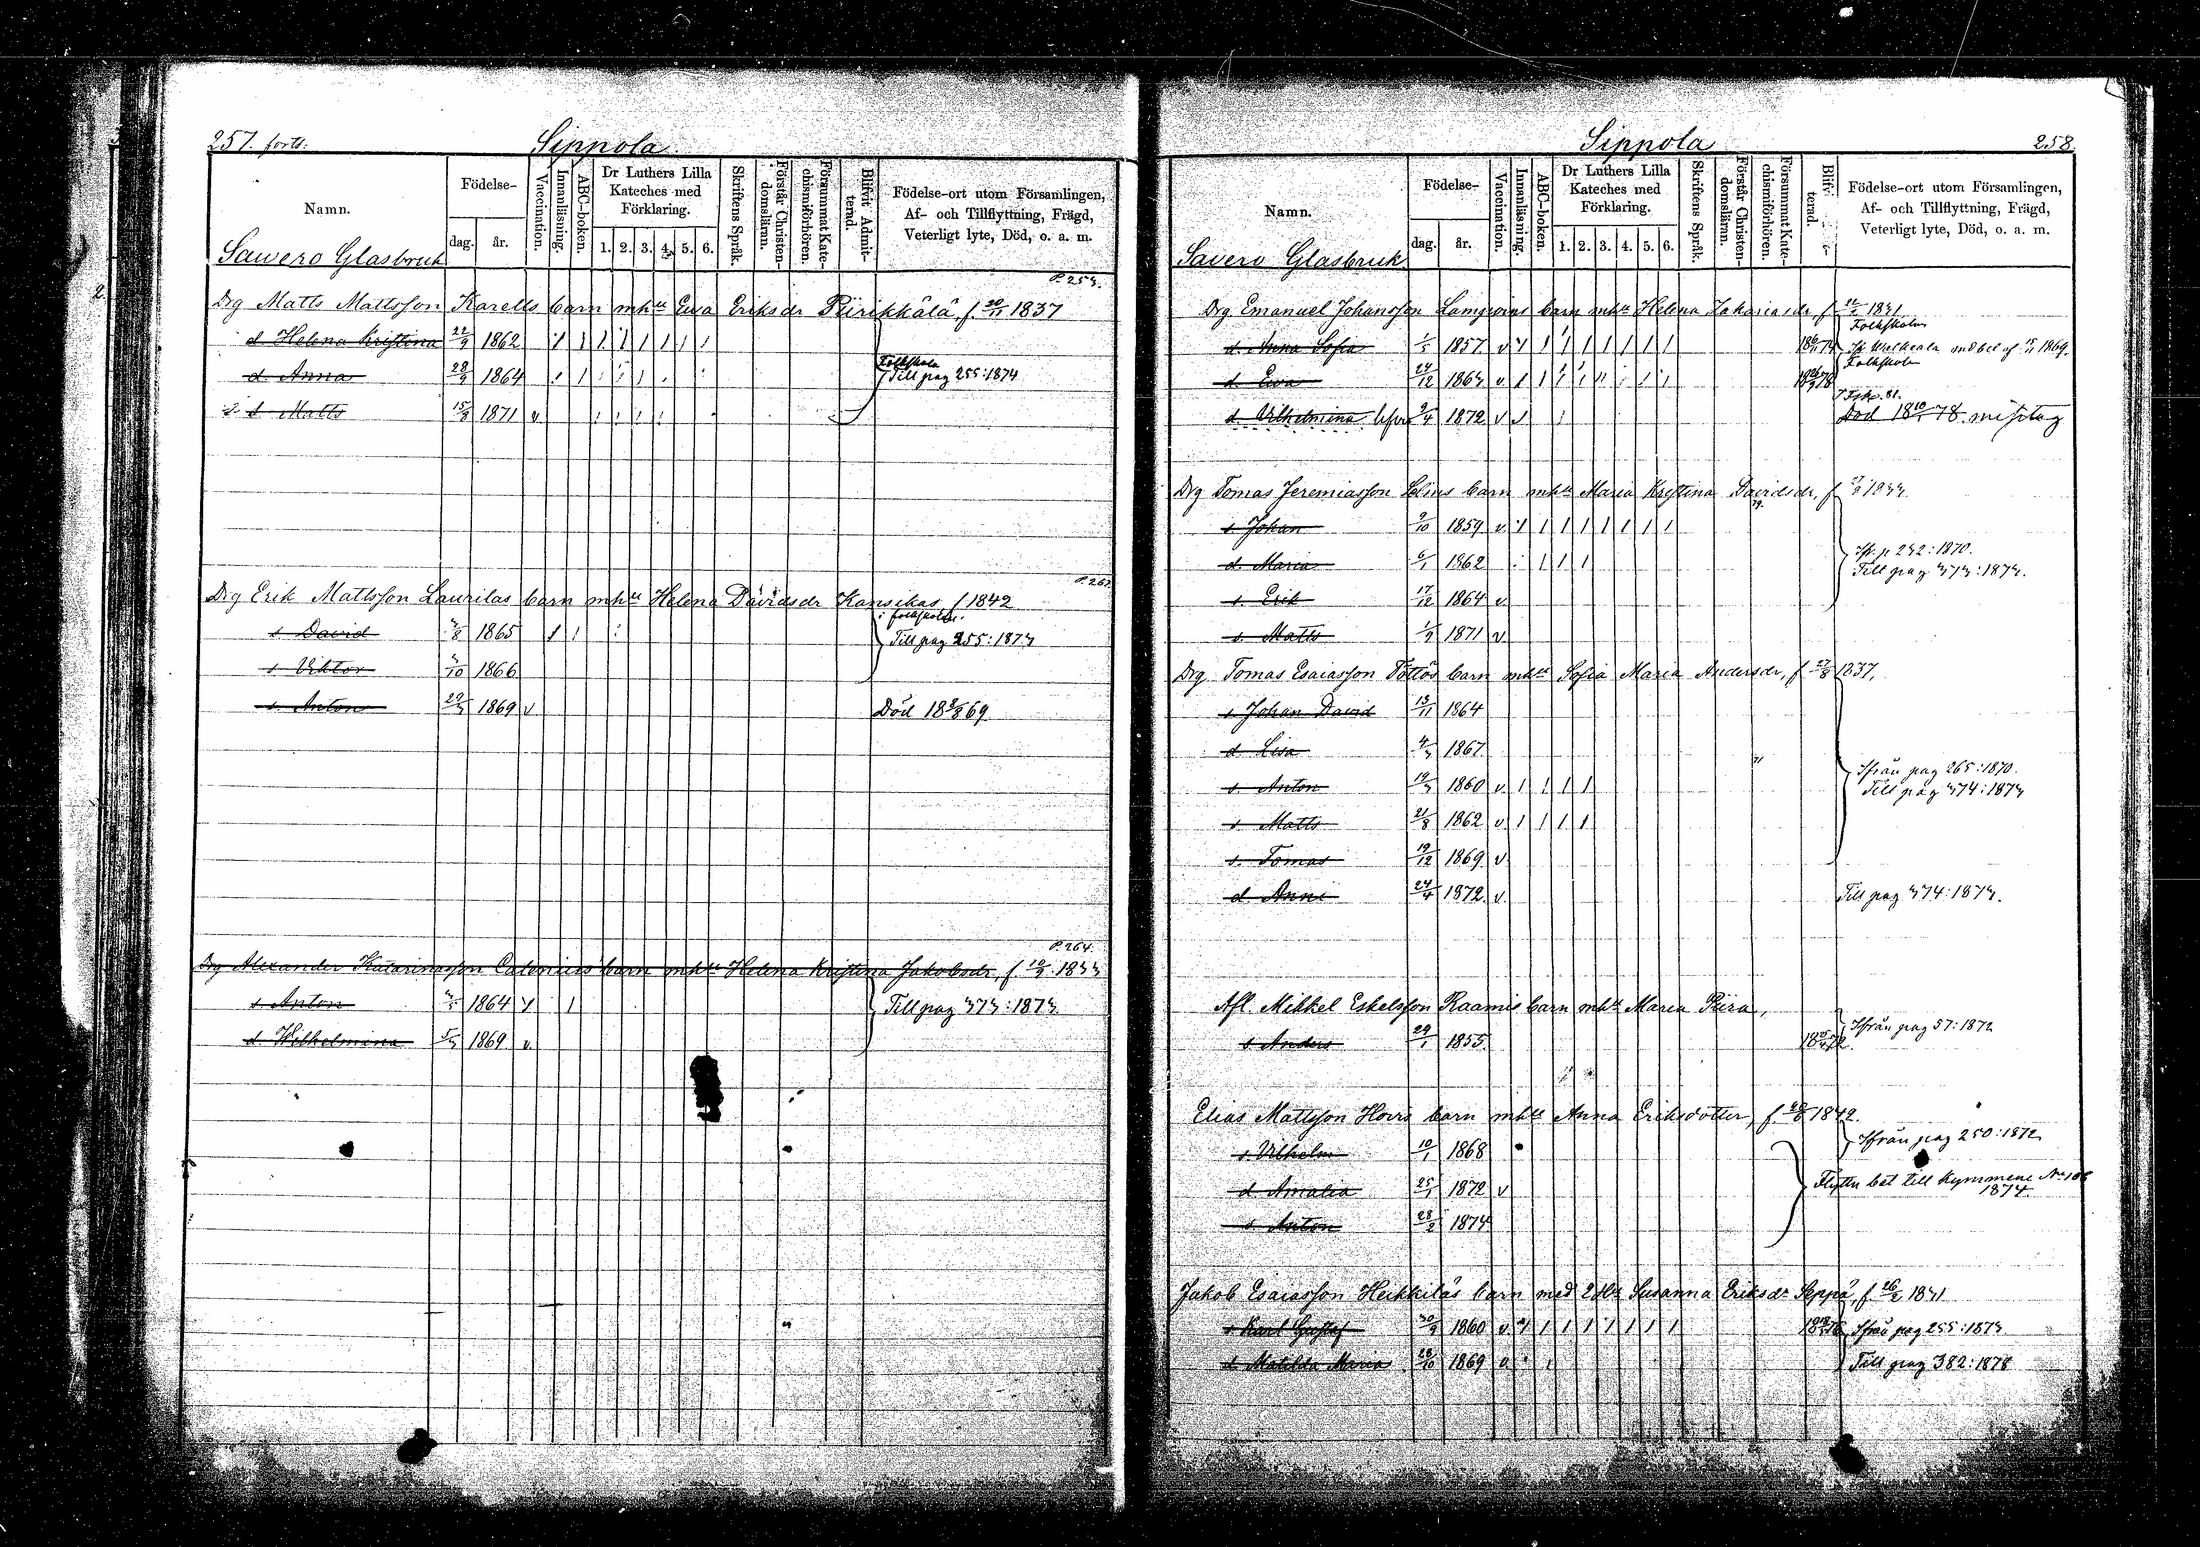 257. forts:
Sippola.
Namn.
Födelse-
dag.
år.
Vaccination.
Innanläsning.
ABC-boken.
Dr Luthers Lilla Kateches med Förklaring.
1. 2. 3. 4. 5. 6.
Skriftens Språk.
Förstår Christendomsläran.
Försummat Katechismiförhören.
Blifvit Admitternd.
Födelse-ort utom Församlingen, Af- och Tillflyttning, Frägd, Veterligt lyte, Död, o. a. m.
Sawero Glasbruk
Drg Matts Mattsson Karells barn m hu Ewa Eriksdr Piirikkälä f. 20/11 1837
d Helena Kristina 22/9 1862
d. Anna 28/9 1864 Folkskola Till pag 255:1874
s Matts 15/8 1871 v
Drg Erik Mattsson Laurilas barn m hu Helena Davidsdr Kansikas f 1842
s David 1865 i folkskolan. Till pag 255:1873
s Viktor 1866
s Anton 1869 v Död 69
P. 264.
Drg Alexander Katarinasson Calonius barn m hu Helena Kristina Jakobsdr, f 1833
s Anton 1864 Till pag 373:1873
d. Wilhelmina 1869. v.
Sippola
258.
Namn.
Födelse-
dag.
år.
Vaccination.
Innanläsning.
ABC-boken.
Dr Luthers Lilla Kateches med Förklaring.
1. 2. 3. 4. 5. 6.
Skriftens Språk.
Förstår Christendomsläran.
Försummat Katechismiförhören.
Födelse-ort utom Församlingen, Af- och Tillflyttning, Frägd, Veterligt lyte, Död, o. a. m.
Savero Glasbruk
Drg Emanuel Johansson barn m hu Helena Zakariasdr f
Folkskolan
d. Anna Sofia 1/5 1857 v 1869.
d. Ewa 24/12 v. Folkskolan
d. Vilhelmina 9/4 1872 v Död 18 10/1 78. misstag
Drg Tomas Jeremiasson barn m hu Maria Kristina Davidsdr, f
s Johan 9/10 1859 v.
d. Maria 6/1 1862 Ifr. p 242:1870.
Till pag 373:1873.
s. Erik 17/12 1864 v.
s. Matts 1/9 1871 v
Drg Tomas Esaiasson Töttös barn m hu Sofia Maria Andersdr, f 27/8 1837,
s Johan David 13/11 1864
d. Lisa 4/3 1867
s Anton 19/3 1860 v. Ifrån pag 265:1870.
Till pag 374:1873
s Matts 21/8 1862 v
s. Tomas 19/12 1869 v
d Anni 24/4 1872. v. Till pag 374:1873.
Afl. Mikkel Eskelsson Raamis barn m hu Maria Piira,
Ifrån pag 57:1872
s Anders 29/1 1855.
Elias Mattsson Hovis barn m hu Anna Eriksdotter, f. 1842.
Ifrån pag 250:1872
s. Vilhelm 10/1 1868
Flyttn bet till Kymmene No 106 1874
d Amalia 25/1 1872 v
s Anton 28/2 1874
Jakob Esaiasson Heikkiläs barn med 2 hu Susanna Eriksdr Seppä, f 26/2 1841
s Karl Gustaf 30/9 1860 v. Ifrån pag 255:1873.
d. Matilda Maria 28/10 1869 v. Till pag 382:1878